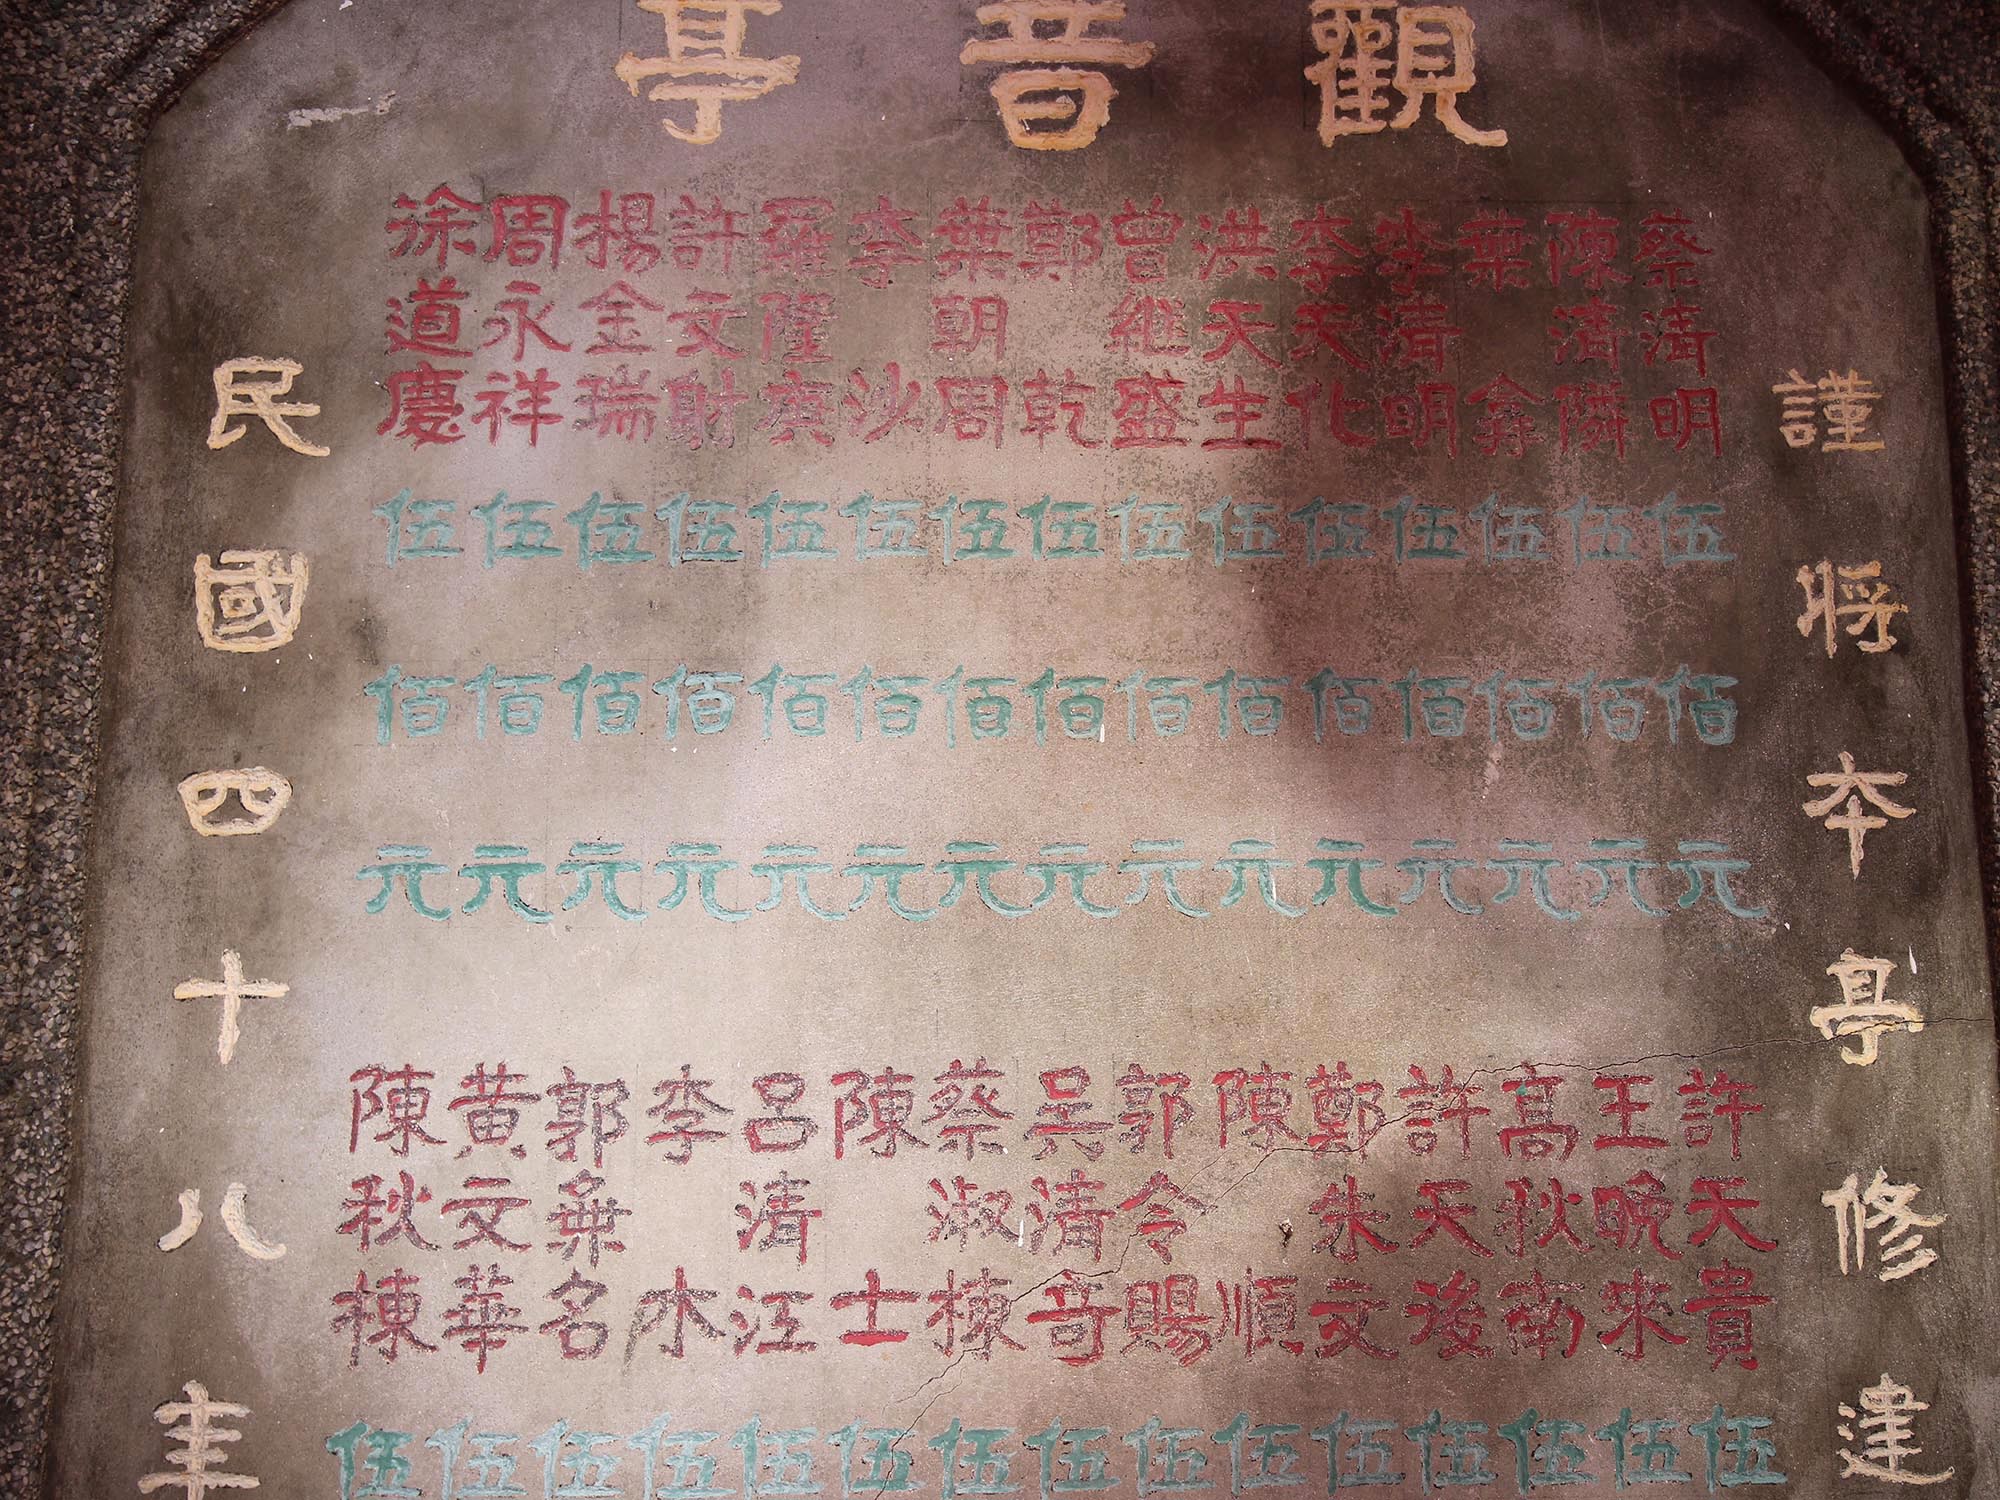 觀音亭
謹將夲亭修建
蔡清明伍佰元
陳清隣伍佰元
葉伍佰元
李清明伍佰元
李天化伍佰元
洪天生伍佰元
曾継盛伍佰元
鄭乾伍佰元
葉朝周伍佰元
李沙伍佰元
羅隆庚伍佰元
許文射伍佰元
楊金瑞伍佰元
周永祥伍佰元
徐道慶伍佰元
許天貴伍
王晩來伍
高秋南伍
許天浚伍
鄭朱文伍
陳順伍
郭令賜伍
吳清奇伍
蔡淑棟伍
陳士伍
呂清江伍
李木伍
郭名伍
黃文華伍
陳秋棟伍
民國四十八年